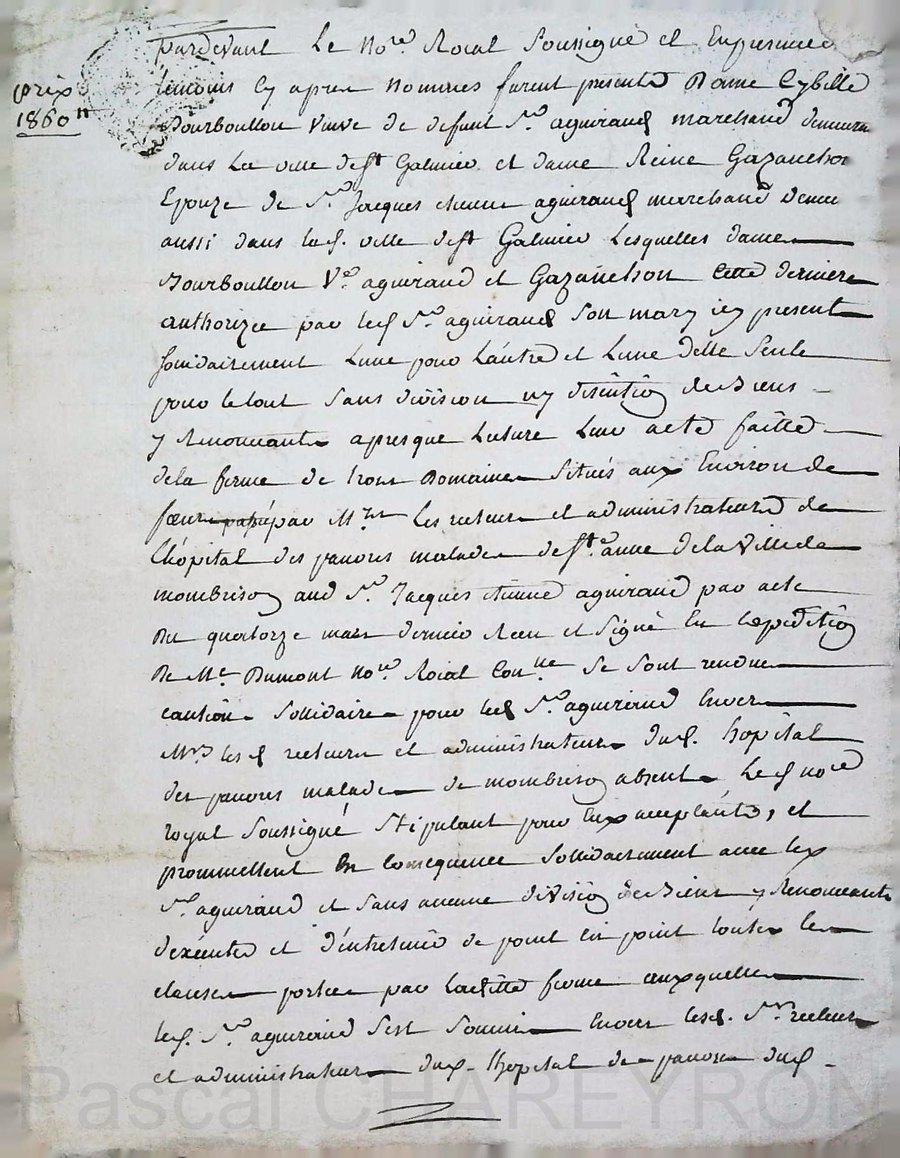 prix
1860ᵗᵗ
pardevant Le Nore Roial Soussigné et En presence
temoins Cy apres Nommés furent presente Dame Cybille
Bourboullon Veuve de defunt Sr. aguiraud marchand demeura
dans La ville de st Galmier et dame Reine Gazanchon
Epouze de Sr. Jacques etienne aguiraud marchand Demeu
aussi dans lad. ville de st Galmier Lesquelles dames
Bourboullon Ve. aguiraud et Gazanchon Cette derniere
authorizée par led Sr. aguiraud Son mary icy present
solidairement Lune pour Lautre et Lune delle Seule
pour le tout Sans division ny discution de Biens
y Renonceants apres que Lecture Leur acte faitte
dela ferme de trois Domaines Situés aux Environ de
par Mrs Les recteurs et administrateurs de
lhôpital des pauvres malades de ste. anne dela Ville de
mombrison aud Sr. Jacques étienne aguiraud par acte
Du quatorze mars dernier Receu et Signé En Expedition
De Me. Dumont Nore. Roial Se Sont rendue
caution Sollidaire pour led Sr. aguiraud Envers
Mrs les d recteurs et administrateurs dud. hopital
des pauvres malades de mombrison absents Le d nore
royal Soussigné Stipulant pour Eux acceptants, et
promettent En Consequence Sollidairement avec led
Sr. aguiraud et Sans aucune division de Biens y Renonceants
dexécuter et d'entretenir de point En point toutes les
clauses portées par Laditte ferme auxquelles
led. Sr. aguiraud Sest Soumis Envers lesd. Srs. recteurs
et administrateurs dud. Hopital de pauvre dud
Pascal CHAREYRON